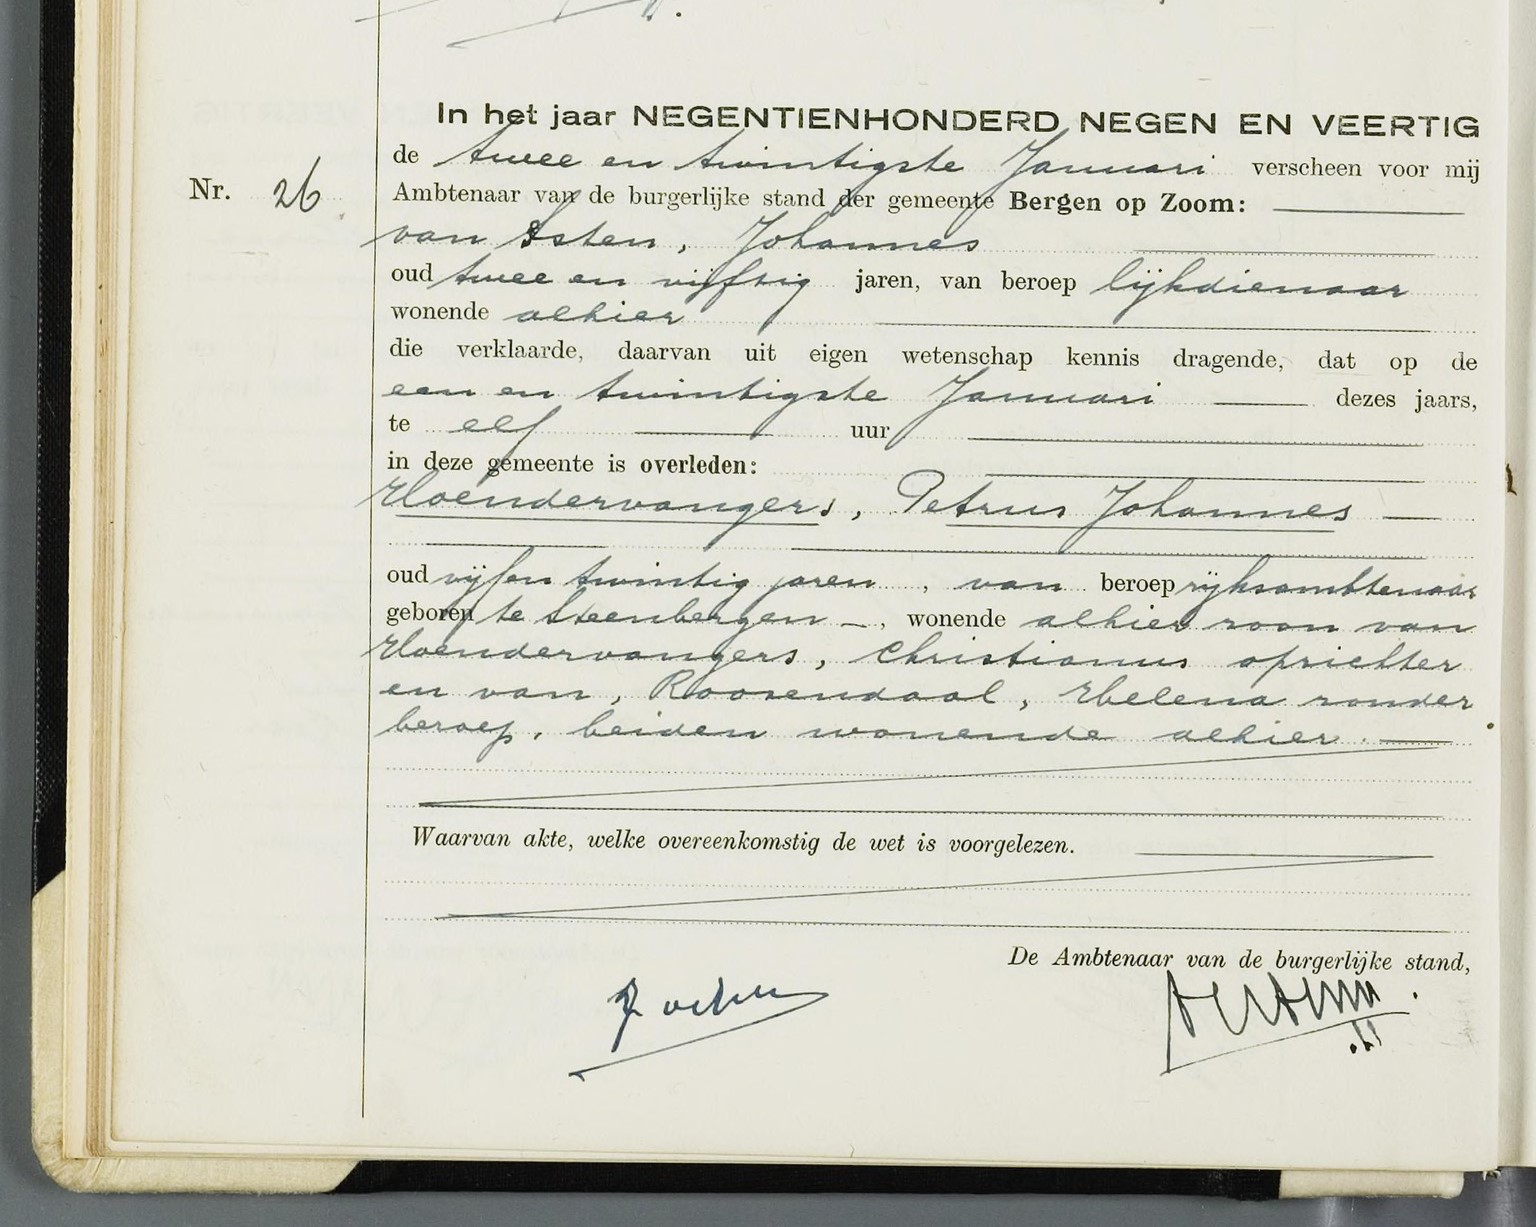 In het jaar NEGENTIENHONDERD NEGEN EN VEERTIG
de twee en twintigste Januari verscheen voor mij
Nr. 26
Ambtenaar van de burgerlijke stand der gemeente Bergen op Zoom:
van Asten, Johannes
oud twee en vijftig jaren, van beroep lijkdienaar
wonende alhier
die verklaarde, daarvan uit eigen wetenschap kennis dragende, dat op de
een en twintigste Januari dezes jaars,
te elf uur
in deze gemeente is overleden:
Hoendervangers, Petrus Johannes
oud vijfen twintig jaren, van beroep rijksambtenaar
geboren te Steenbergen, wonende alhier zoon van
Hoendervangers, Christianus oprichter
en van, Roosendaal, Helena zonder
beroep, beiden wonende alhier.
Waarvan akte, welke overeenkomstig de wet is voorgelezen.
De Ambtenaar van de burgerlijke stand,